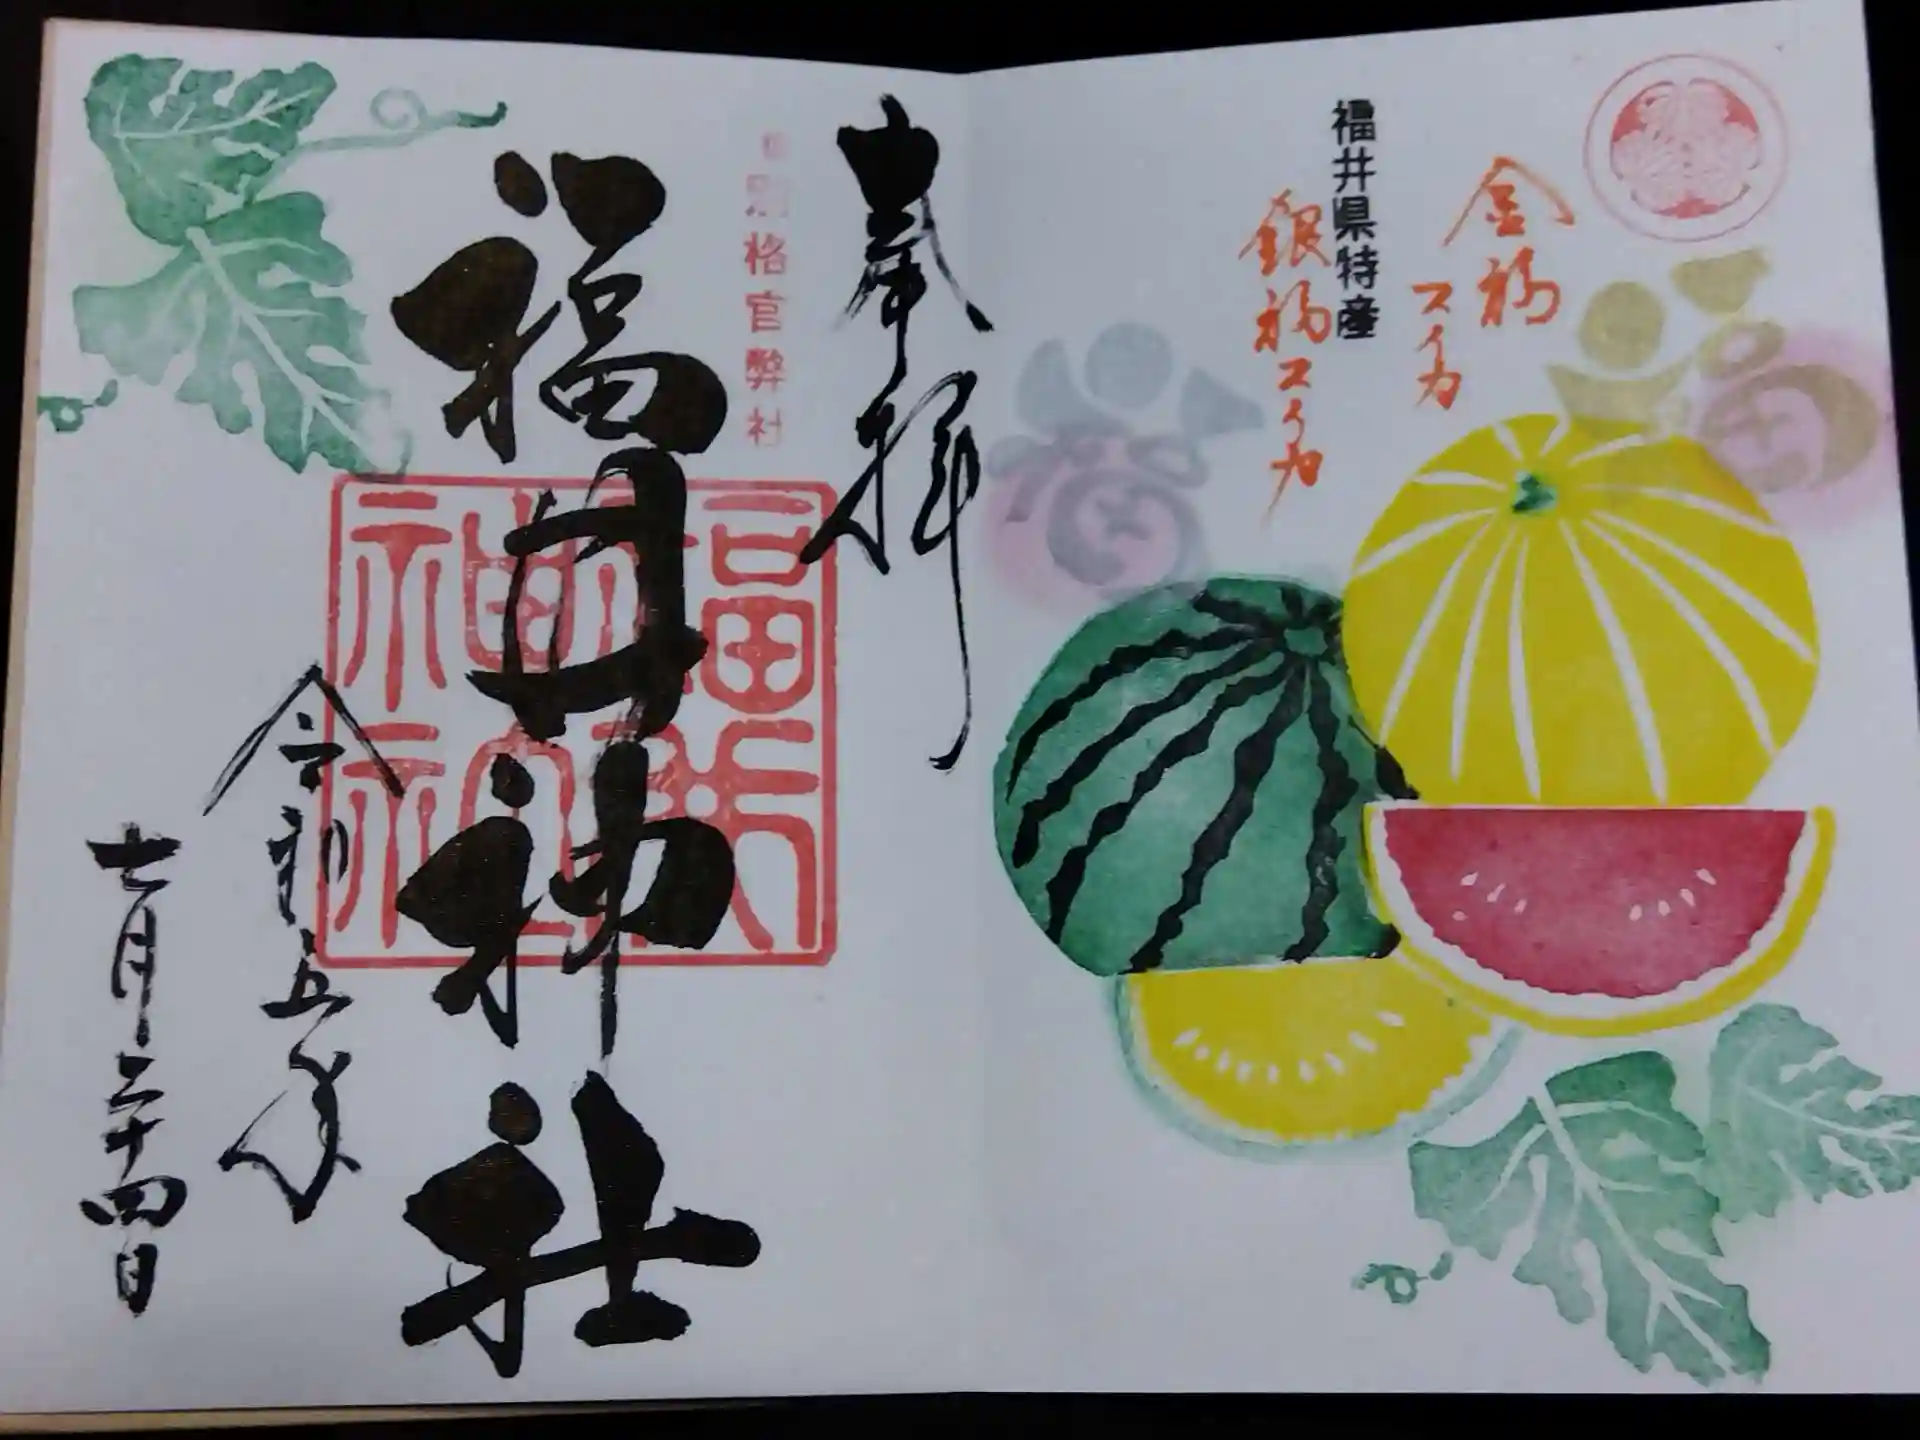 福井県特産
金福
スイカ
銀福スイカ
奉拝
別格官幣社
福井神社
令和五年
七月二十四日